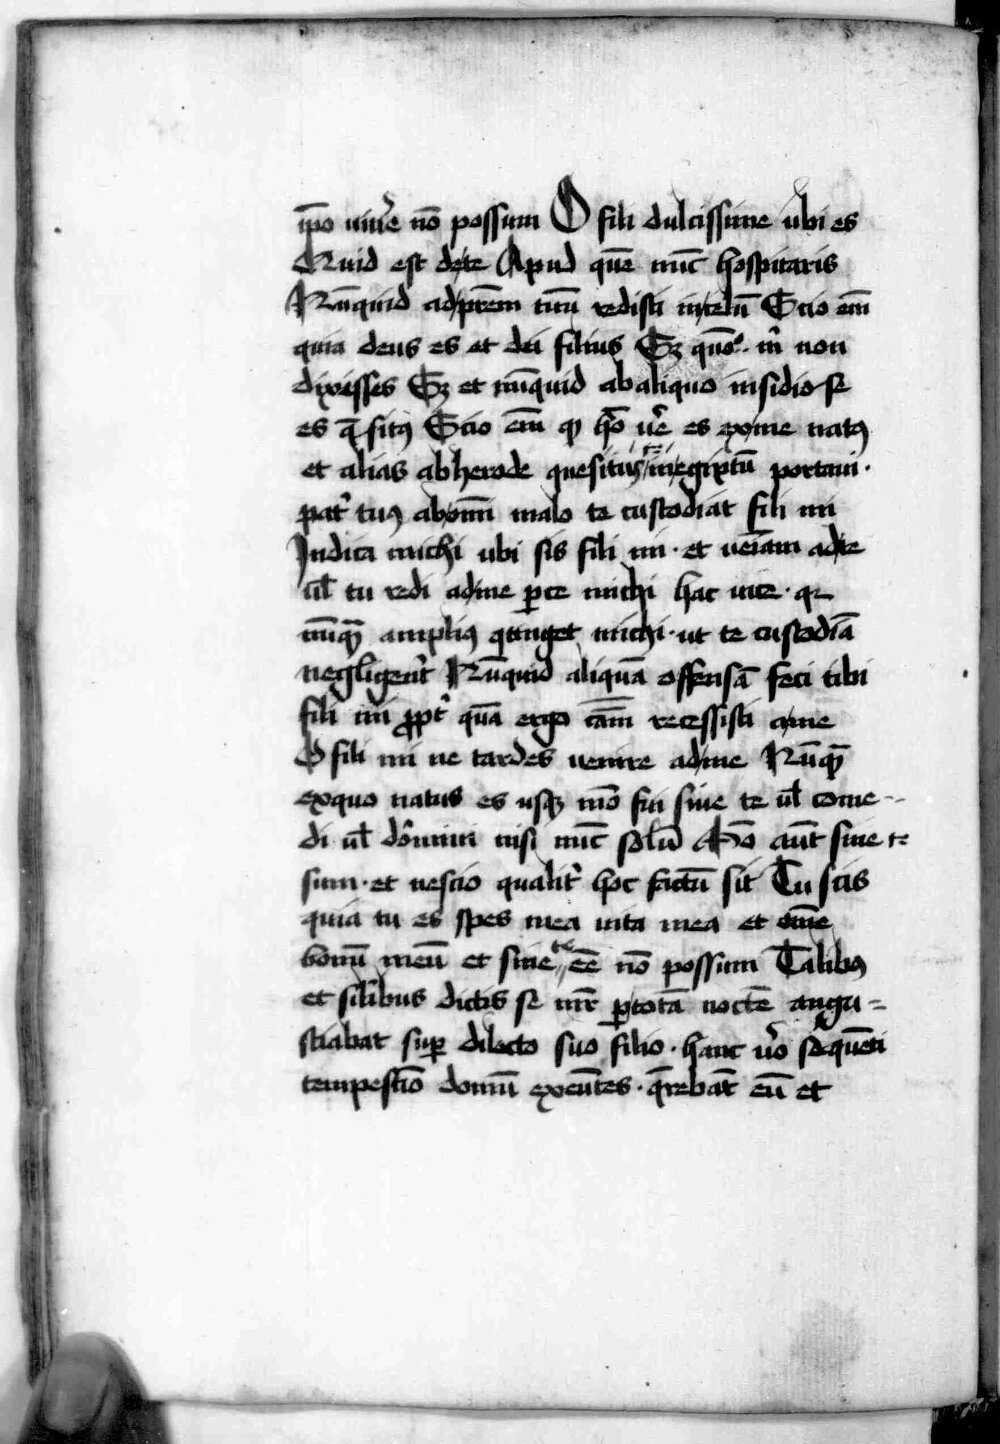 ip̄o uiue᷑ nō possum O fili dulcissime ubi es
Quid est de te Apud quē nūc hospitaris
Nūquid ad pr̄em tuū redisti in celū Scio em̄
quia deus es et dei filius Sꝫ quō m̄ non
dixisses Sꝫ et nūquid ab aliquo insidiose
es q̄situꝰ Scio em̄ ꝙ hō ue᷑ es ex me natꝰ
et alias ab herode quesitus te in egiptū portaui·
pat᷑ tuꝰ ab om̄i malo te custodiat fili mi
Indica michi ubi sis fili mi· et ueīam ad te
ul̄ tu redi ad me ꝑce michi hac uice· qꝛ
nūqͣ ampliꝰ ꝯtinget michi· ut te custodiā
negligent᷑ Nūquid aliquā offensā feci tibi
fili mi ꝓpt᷑ quā ergo cām recessisti a me
O fili mi ne tardes uenire ad me Nūqͣ
ex quo natus es usqꝫ mō fui sine te ul̄ come-
di ul̄ dormiui nisi nūc solū Mō aūt sine te
sum· et nescio qualit᷑ hoc factū sit Tu scis
quia tu es spes mea uita mea et om̄e
bonū meū et sine te eē nō possum Talibꝰ
et sil̄ibus dictis se mr̄ ꝑ totā noctē angu=
stiabat suꝑ dilecto suo filio· hanc u᷑o sequēti
tempestiō domū exeūtes· q̄rebāt eū et